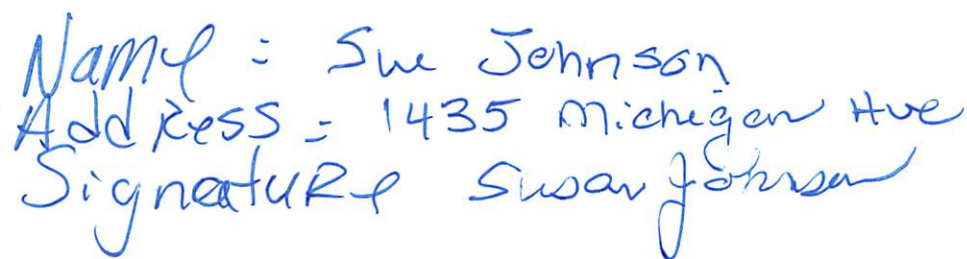 Name : Sue Johnson
Address : 1435 Michigan Ave
Signature Susan Johnson